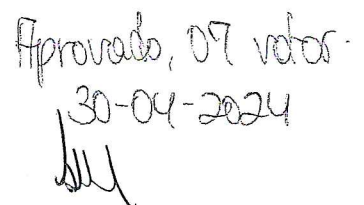 Aprovado, 07 votos.
30-04-2024